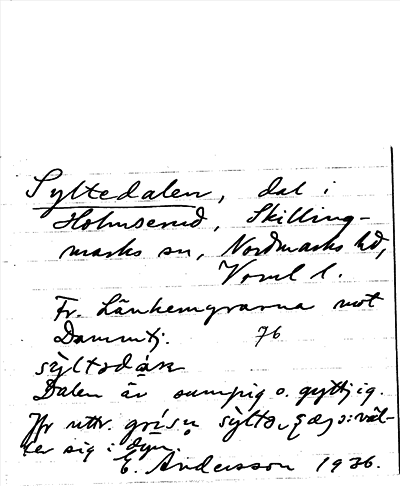 Syltedalen, dal i
Holmserud, Skilling-
marks sn, Nordmarks hd,
Värml l.
Fr. Länkemyrarna mot
Dammtj. 76
sỳltɘdάɳ
Dalen är sumpig o. gyttjig.
Jfr uttr. grísɳ sỳltɘ, ɘ: väl-
ter sig i dyn.
E. Andersson 1936.